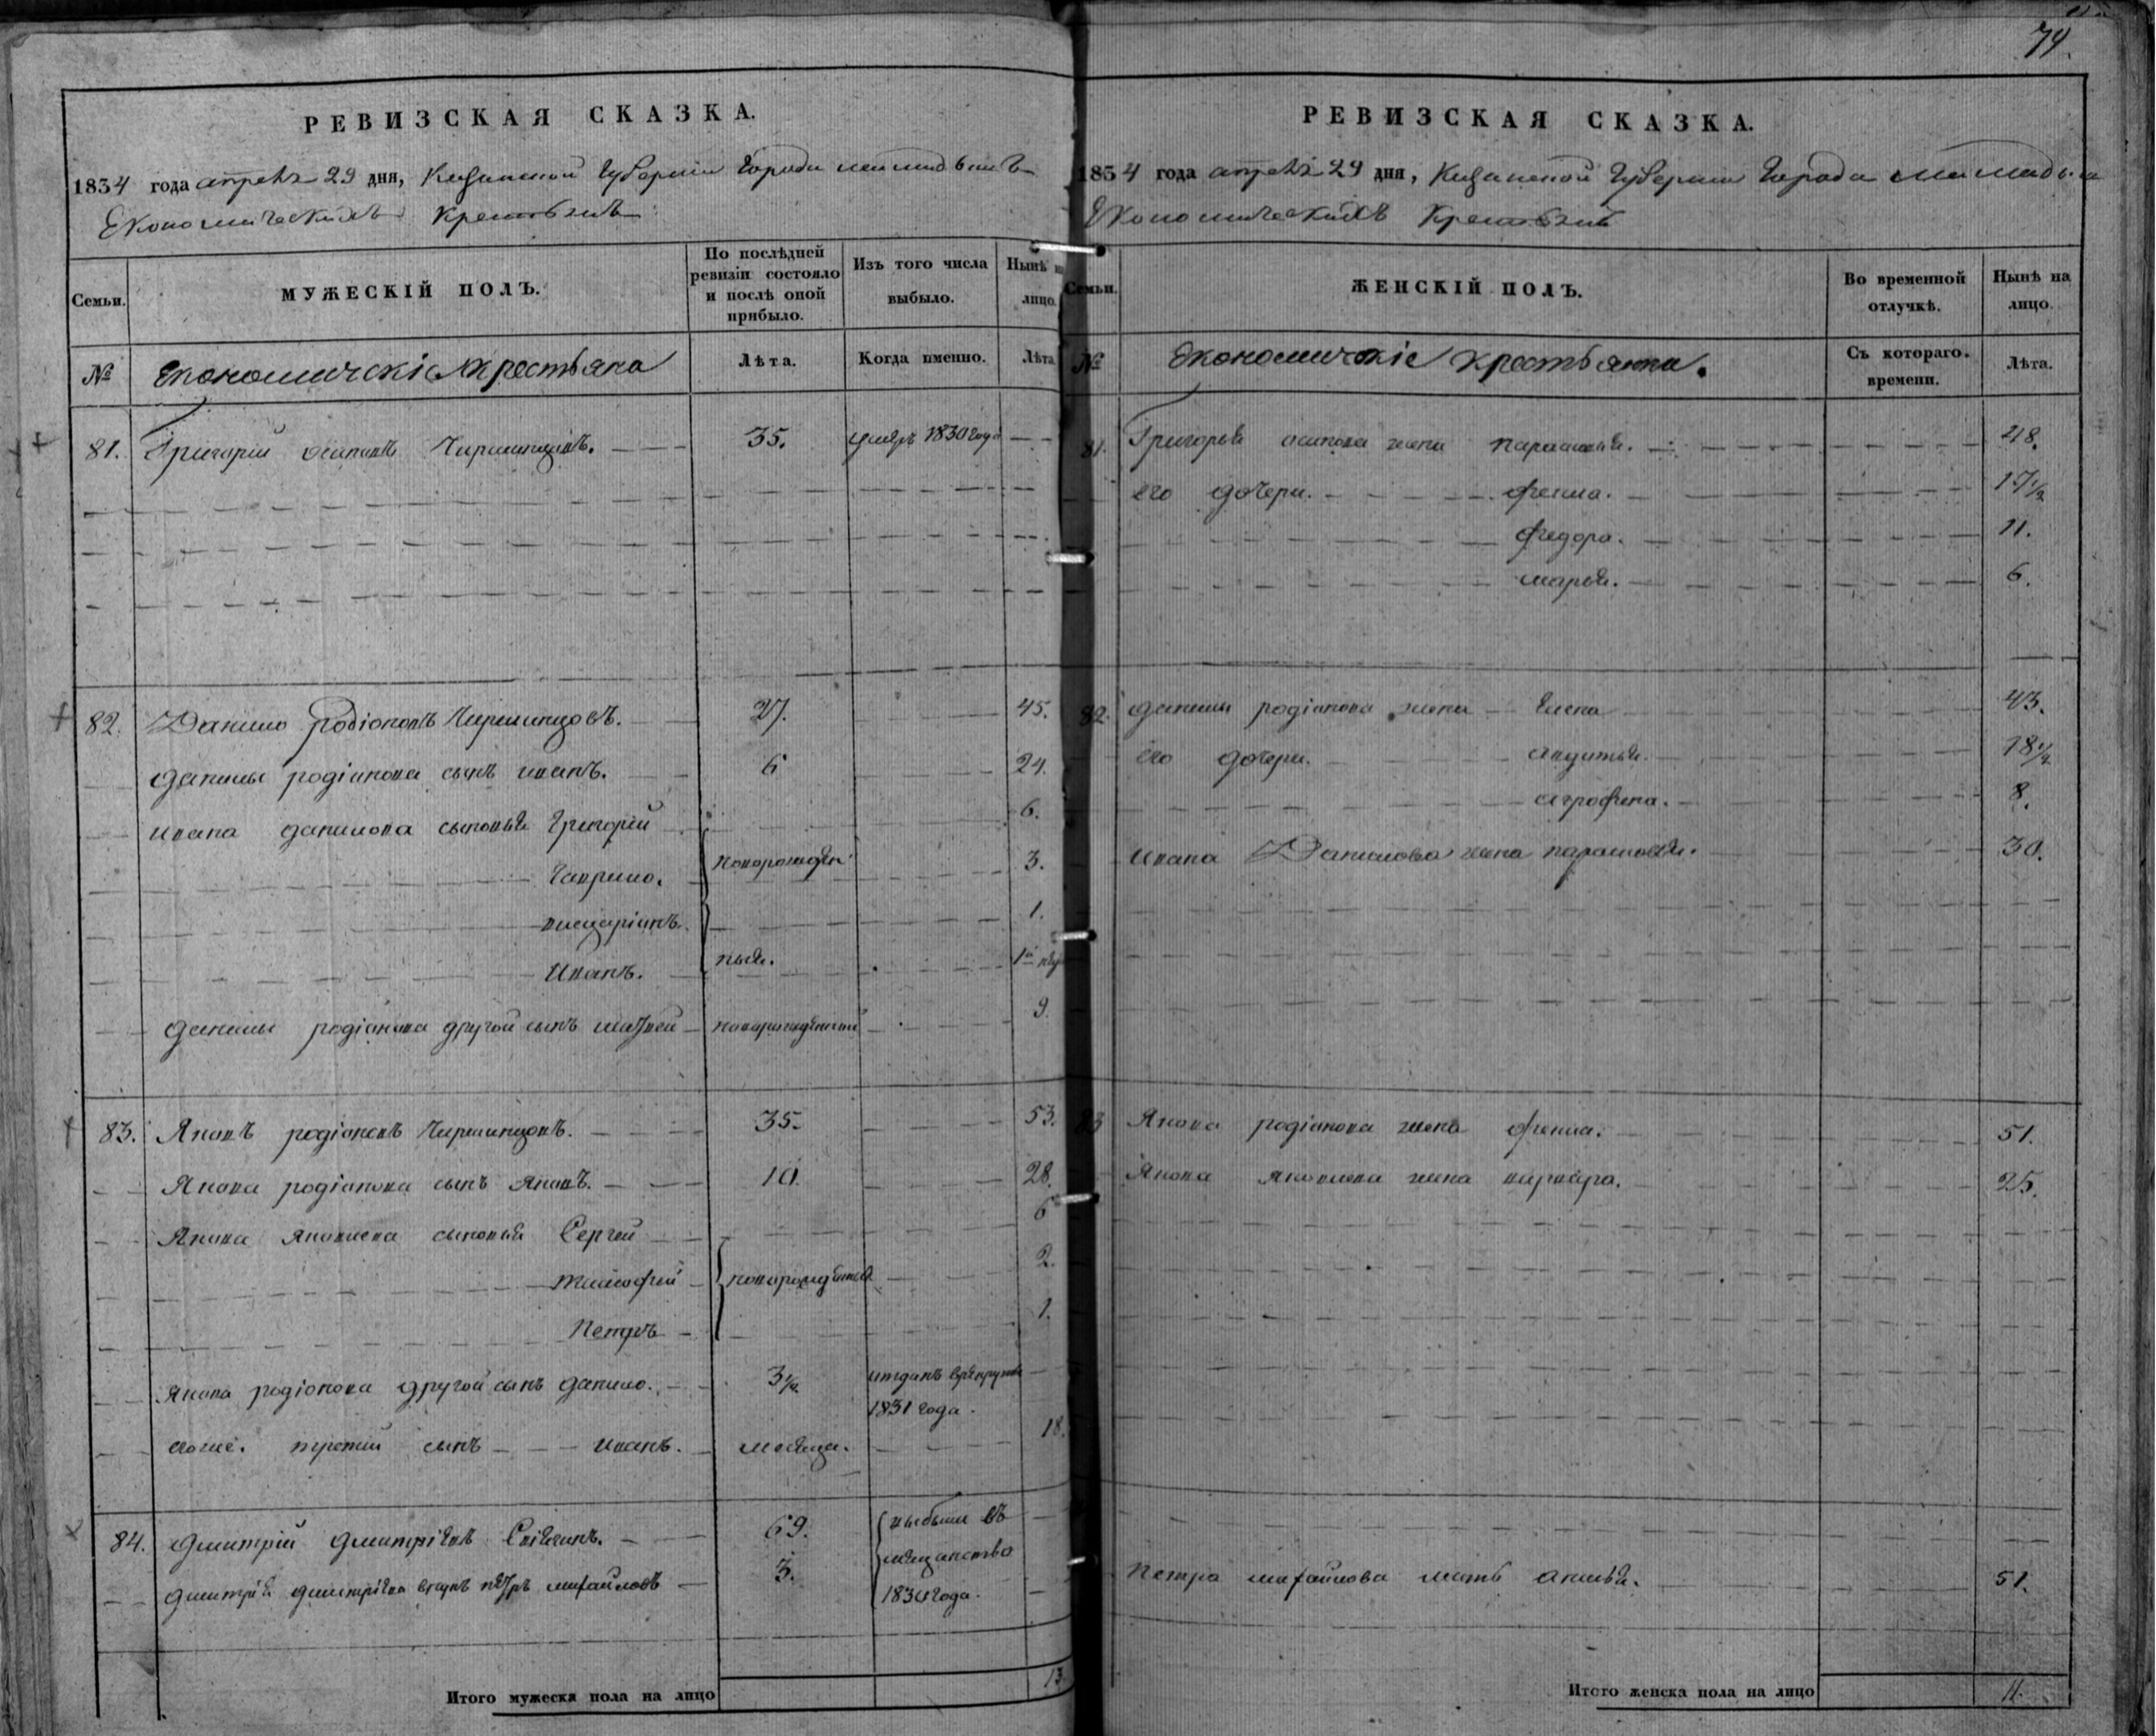 74.
РЕВИЗСКАЯ СКАЗКА.
1834 года апрель 29 дня, Казанской Губернии Города
Економическихъ крестьянъ
Семьи.
МУЖЕСКІЙ ПОЛЪ.
По послѣдней ревизіи состояло и послѣ оной прибыло.
Изъ того числа выбыло.
Нынѣ на лицо.
№
Економическіе крестьяна
Лѣта.
Когда именно.
Лѣта
81. Григорій осиповъ 35. умеръ 1830 года
82. Данило родіоновъ 27. 45.
данилы родіонова сынъ иванъ. 6 24.
ивана данилова сыновья Григорій 6.
Гаврило. новорожден 3.
1.
Иванъ. ныя. 1
данилы родіонова другой сынъ матвей новорожденный 9.
83. Яковъ родіоновъ 35. 53.
Якова родіонова сынъ яковъ. 10. 28.
Якова яковлева сыновья Сергей 6
тимофей новорожденныя 2.
Петръ 1.
якова родіонова другой сынъ данило. 3½ отданъ врекруты
1831 года.
егоже. третий сынъ иванъ. месяца. 18.
84. дмитрій дмитріевъ 69. выбыли въ
мещанство
дмитрія дмитріева внукъ петръ михайловъ 3. 1830 года.
Итого мужеска пола на лицо 13.
РЕВИЗСКАЯ СКАЗКА.
1834 года апреля 29 дня, Казанской Губернии Города
Економическихъ Крестьянъ
Семьи.
ЖЕНСКІЙ ПОЛЪ.
Во временной отлучкѣ.
Нынѣ на лицо.
№
Економическіе крестьянки.
Съ котораго времени.
Лѣта.
81. Григорья осипова жена парасковья. 48.
его дочери. офенма. 17½
федора. 11.
марья. 6.
82. данилы родіонова жена Елена 43.
его дочери. 18½
агрофена. 8.
ивана Данилова жена парасковья. 30.
83 Якова родіонова жена офенма. 51.
Якова яковлева жена варвара. 25.
Петра михайлова мать 51.
Итого женска пола на лицо 11.